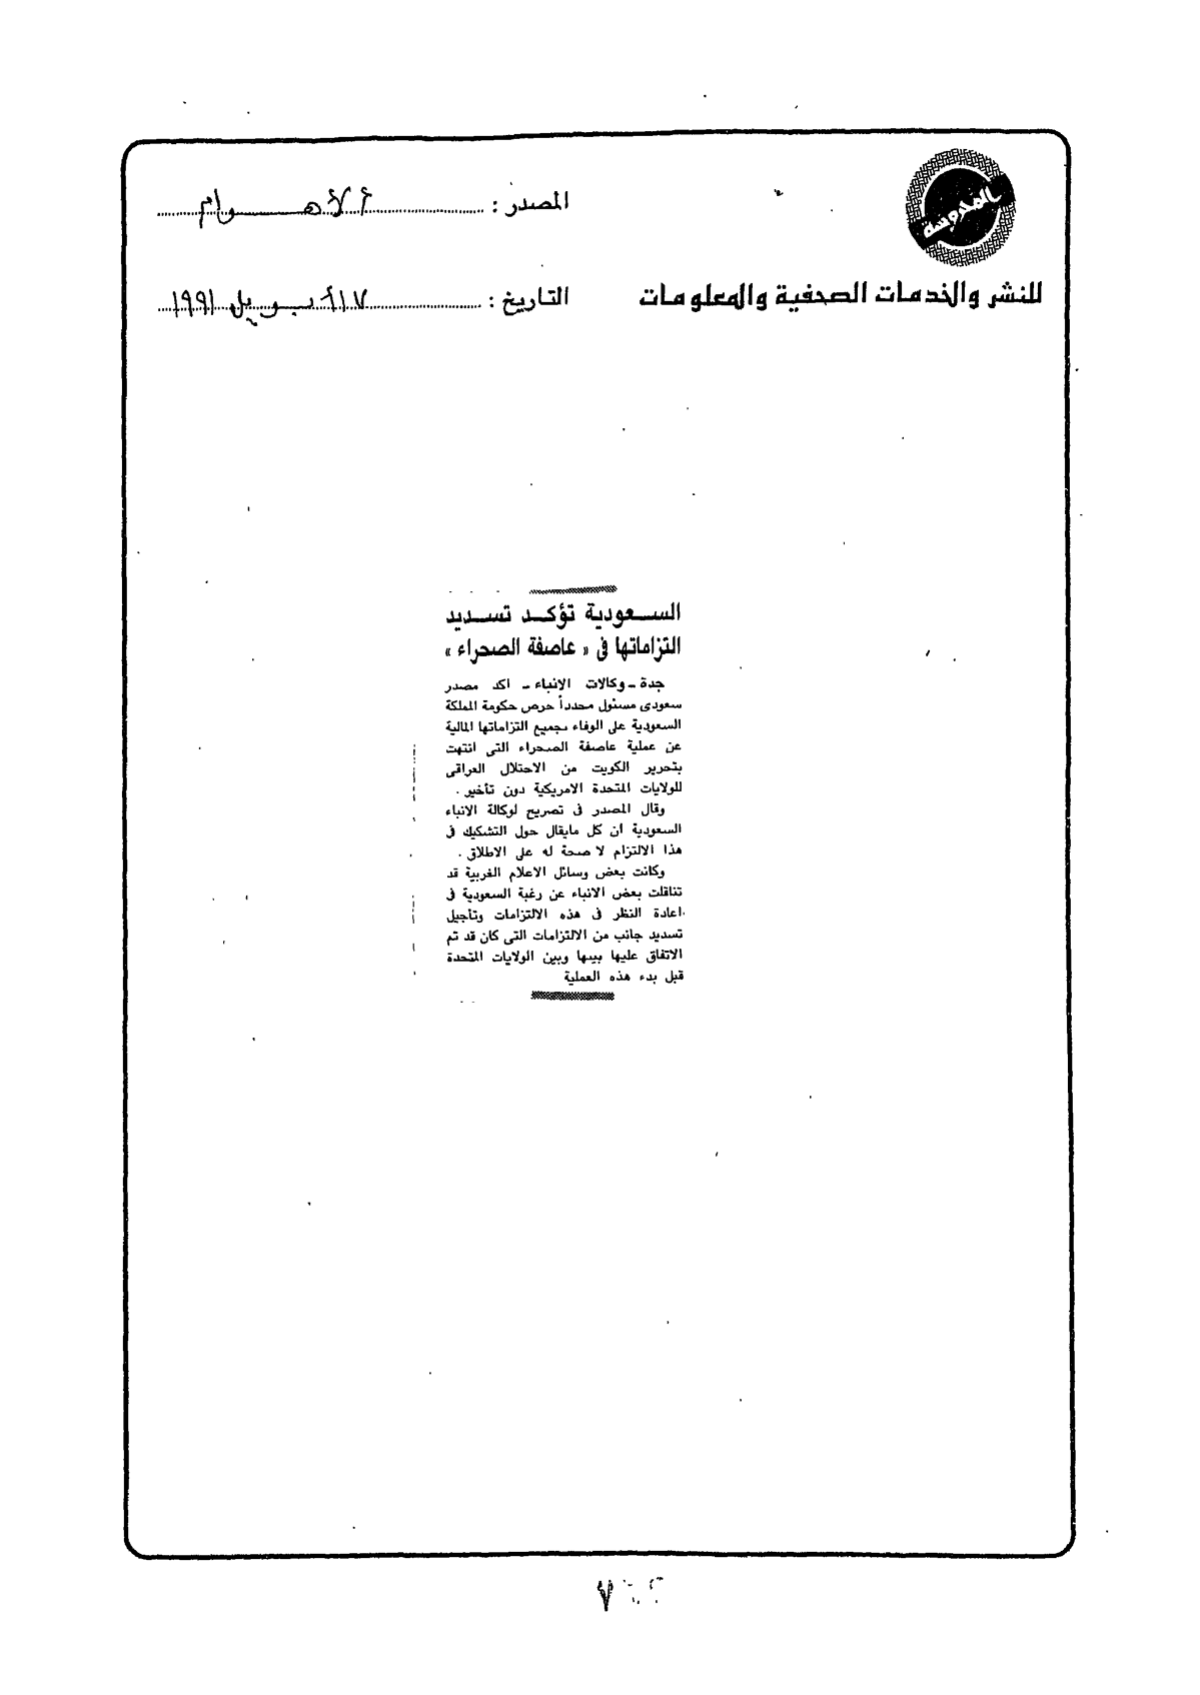 المحروسة
المصدر : الأهــرام
للنشر والخدمات الصحفية والمعلومات
التاريخ : ١٧ أبــريل ١٩٩١
الســعودية تؤكــد تســديد
التزاماتها فى « عاصفة الصحراء »
جدة ـ وكالات الانباء ـ اكد مصدر
سعودى مسئول مجدداً حرص حكومة المملكة
السعودية على الوفاء بجميع التزاماتها المالية
عن عملية عاصفة الصحراء التى انتهت
بتحرير الكويت من الاحتلال العراقى
للولايات المتحدة الامريكية دون تأخير .
وقال المصدر فى تصريح لوكالة الانباء
السعودية ان كل مايقال حول التشكيك فى
هذا الالتزام لا صحة له على الاطلاق .
وكانت بعض وسائل الاعلام الغربية قد
تناقلت بعض الانباء عن رغبة السعودية فى
اعادة النظر فى هذه الالتزامات وتأجيل
تسديد جانب من الالتزامات التى كان قد تم
الاتفاق عليها بينها وبين الولايات المتحدة
قبل بدء هذه العملية